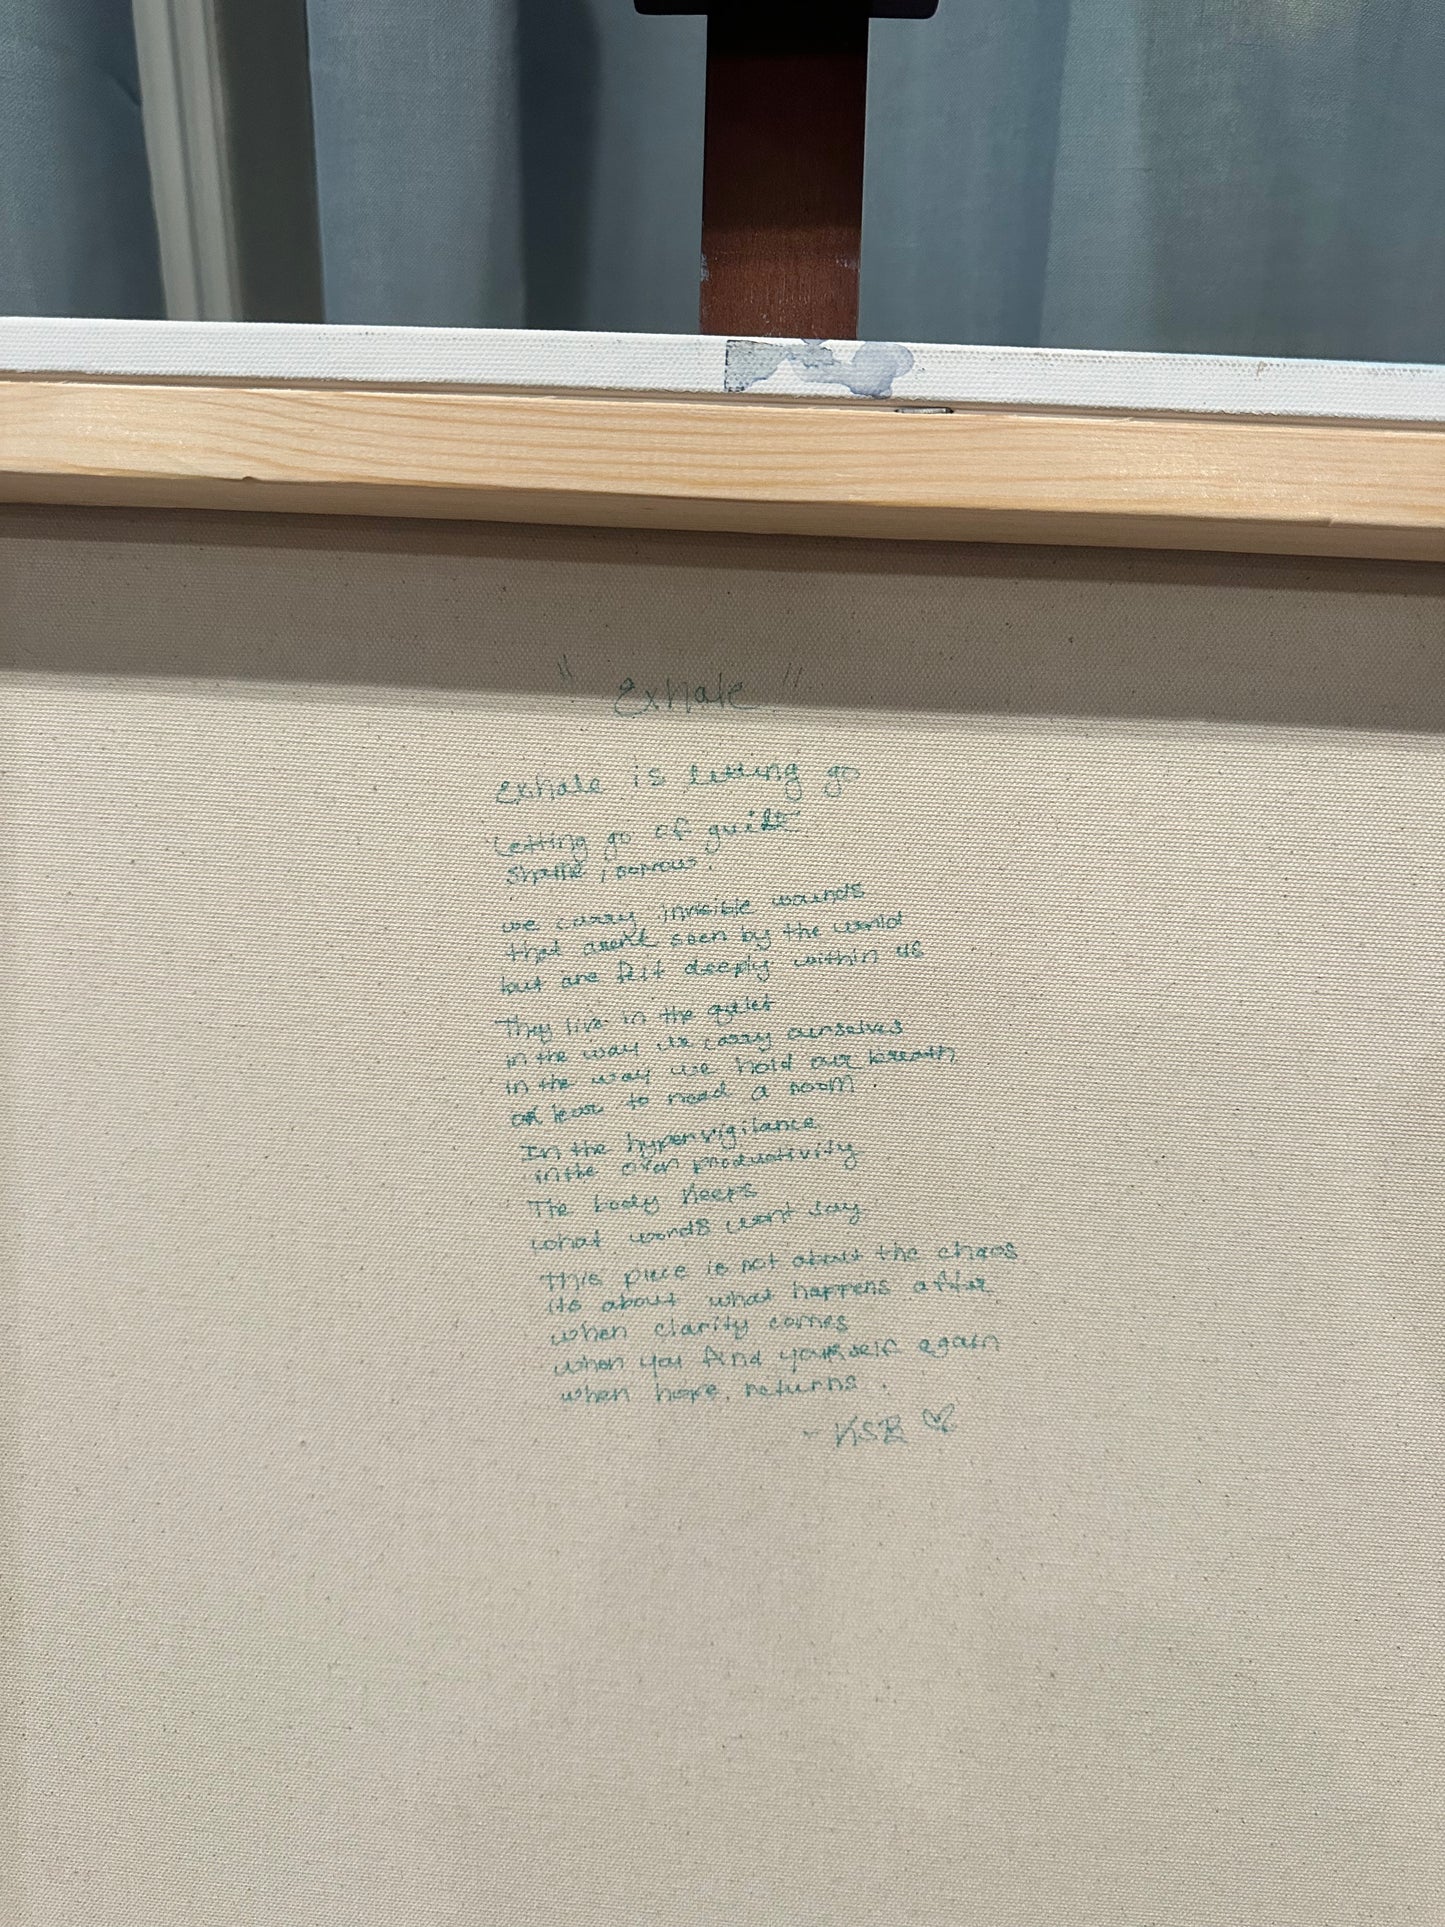 "Exhale"
Exhale is letting go
Letting go of guilt
shame, sorrow.
we carry invisible wounds
that arent seen by the world
but are felt deeply within us
They live in the quiet
in the way we carry ourselves
in the way we hold our breath
or learn to read a room.
In the hypervigilance
in the over productivity
The body keeps
what words wont say
This piece is not about the chaos
its about what happens after
when clarity comes
when you find yourself again
when hope returns.
- KSB